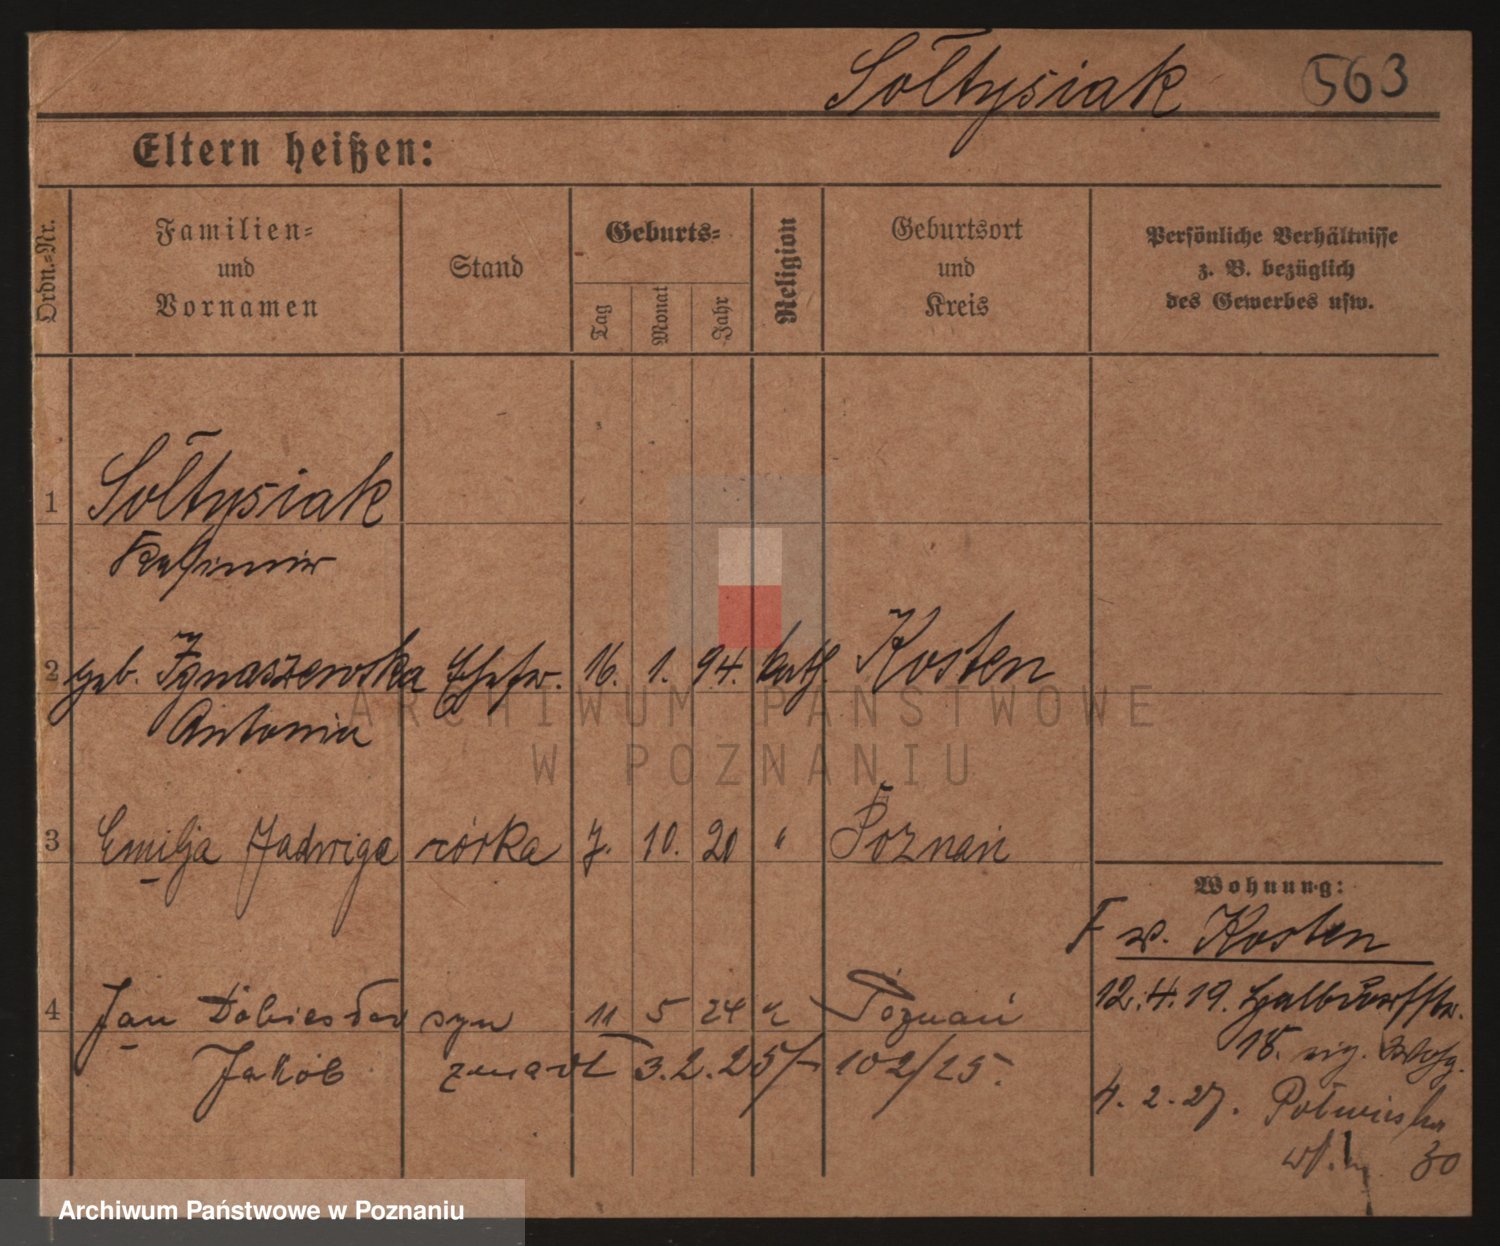 Sołtysiak 563
Eltern heißen:
Ordn.-Nr. Familien- und Vornamen Stand Geburts- Tag Monat Jahr Religion Geburtsort und Kreis Persönliche Verhältnisse z. B. bezüglich des Gewerbes usw.
1 Sołtysiak
Kasimir
2 geb. Ignaszewska Ehefr. 16. 1. 94. kath. Kosten
Antonia
ARCHIWUM PAŃSTWOWE
W POZNANIU
3 Emilja Jadwiga córka 7. 10. 20 " Poznań
Wohnung:
F w. Kosten
4 Jan Dobiesław syn 11 5 24 " Poznań
Jakób zmarł 3.2.25 102/25.
12.4.19. Halbdorfstr.
18. eig. Whg.
4.2.27. Półwiejska
30
Archiwum Państwowe w Poznaniu